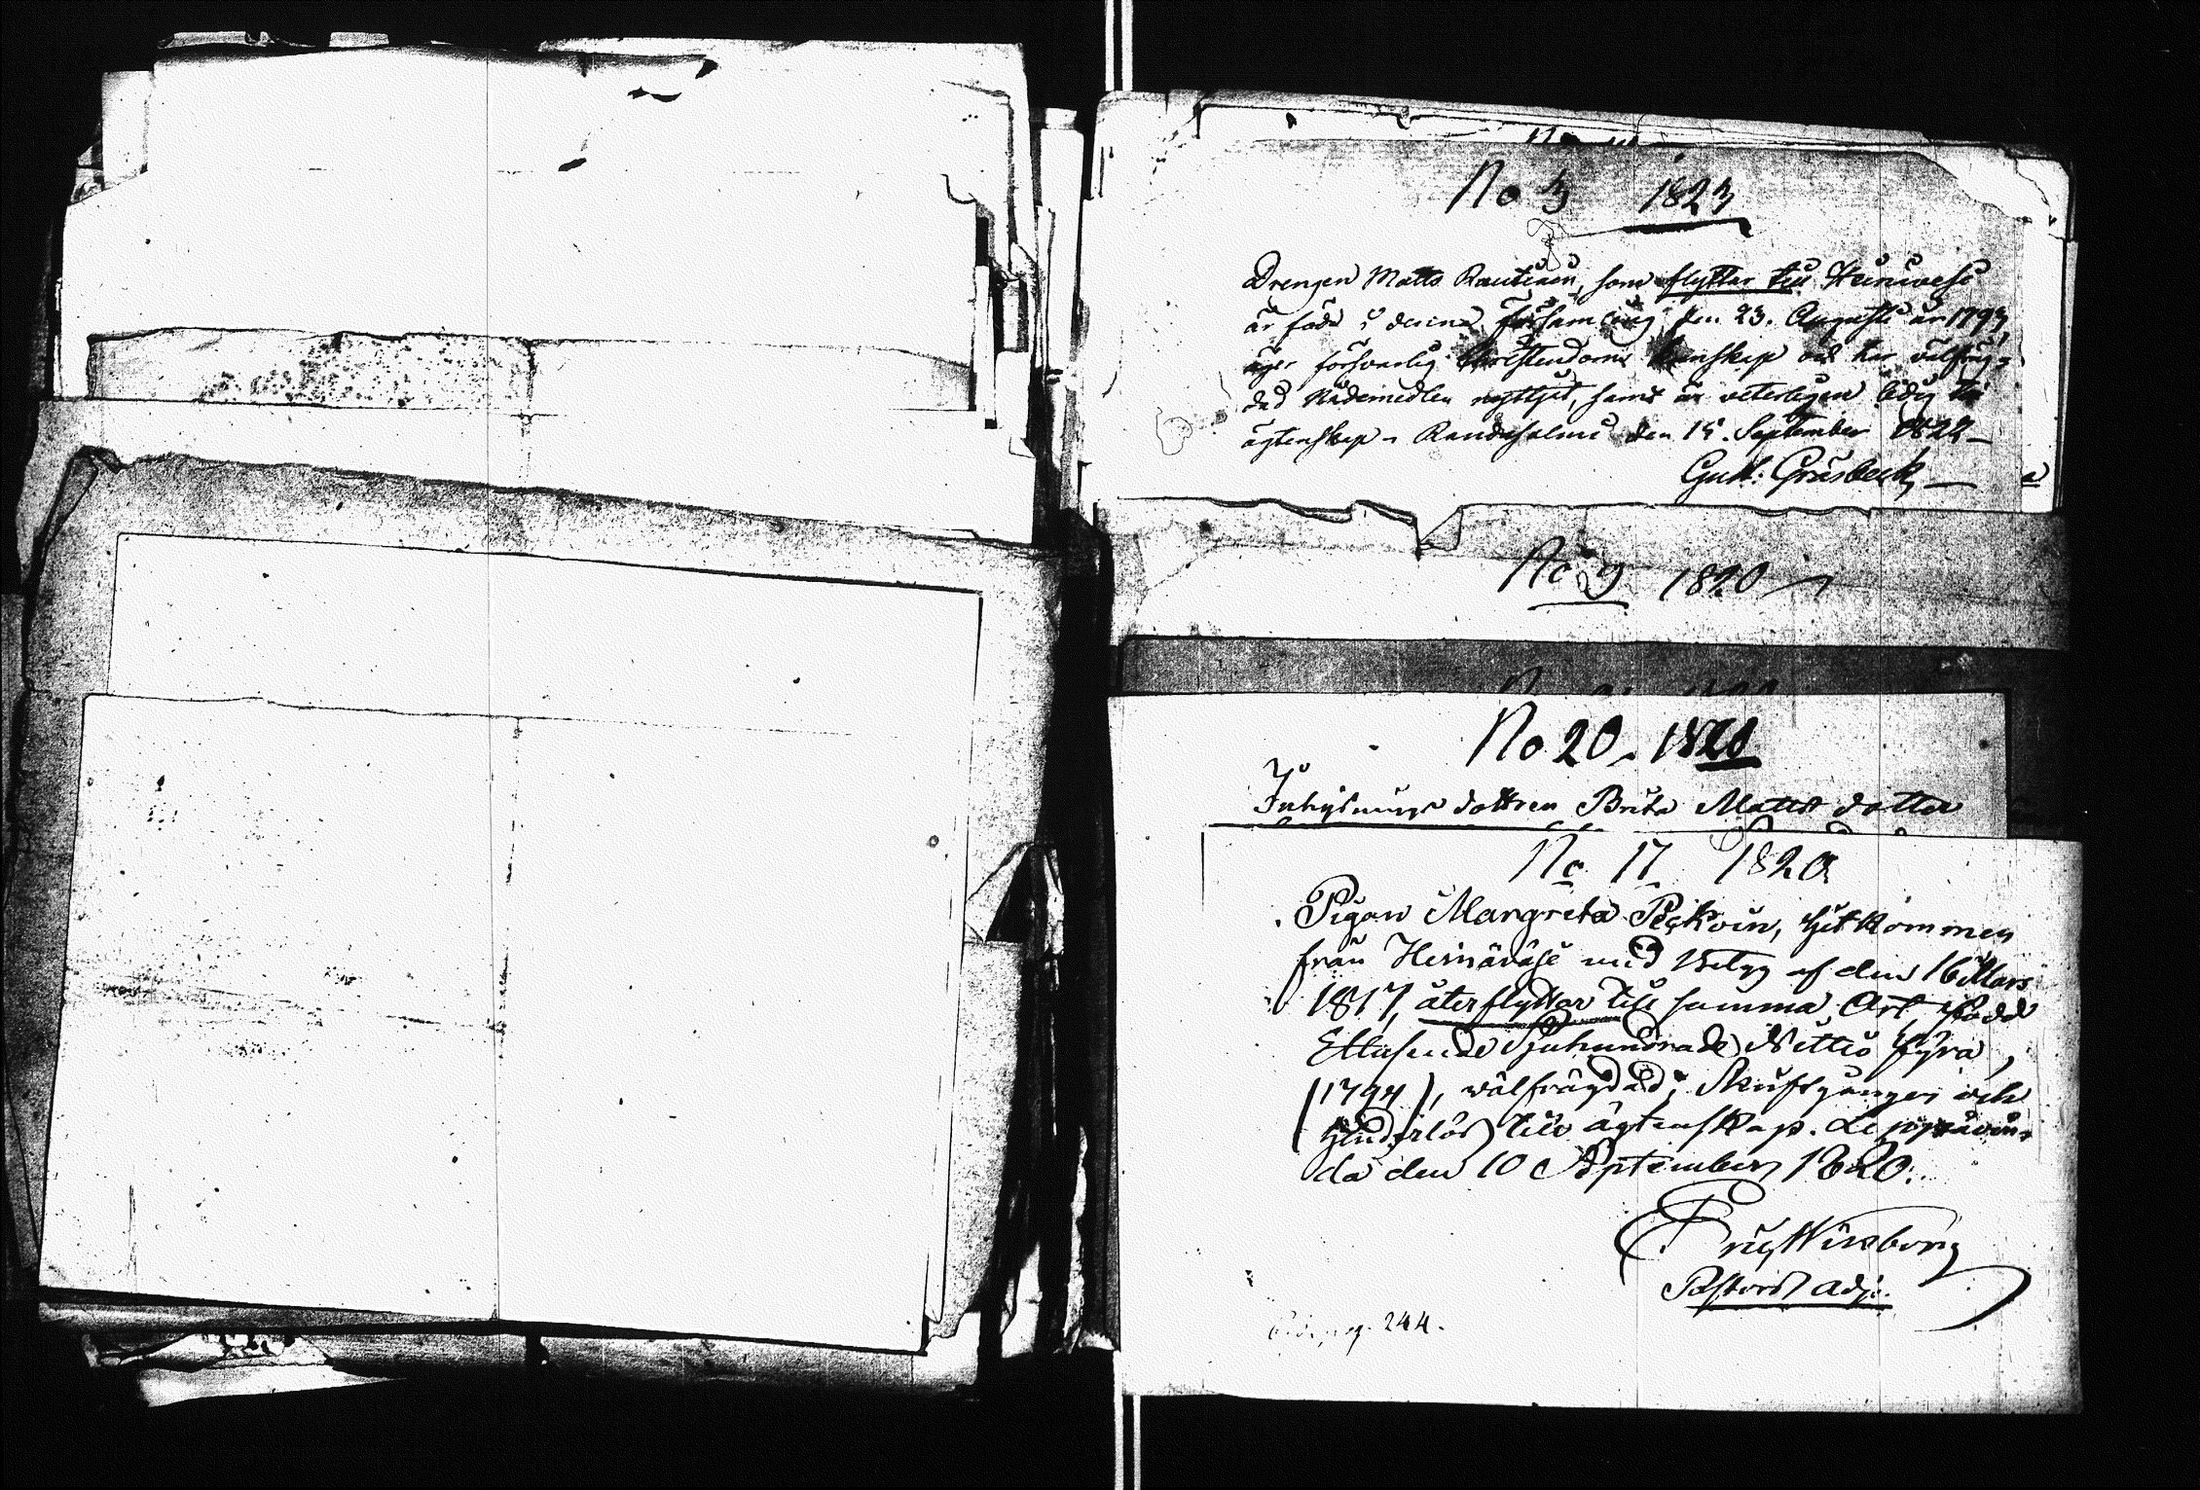 No 3 1823
Drengen Matts Rautiain, som flyttar till Heinävesi
är född i denna Församling den 23. Augusti år 1793,
äger försvarlig Christendoms kunskap och har välfräg-
dad Nådemedlen nyttjat, samt är veterligen ledig til
ägtenskap. Randasalmi den 15. September 1822
Gust: Gråsbeck
No 9 1820
No 20. 1820
Inhysings dottren Brita Matts dotter
No 17 1820
Pigan Margreta Pelkoin, hitkommen
från Heinäväsi med Betyg af den 16 Mars
1817, återflyttar till samma Ort, född
Ettusende Sjuhundrade Nittio fyra,
(1794), wälfrägdad, Skriftgången och
hinderlös till ägtenskap. Leppävir-
da den 10 September 1820.
Wineborg
Pastors Adj.
pag. 244.